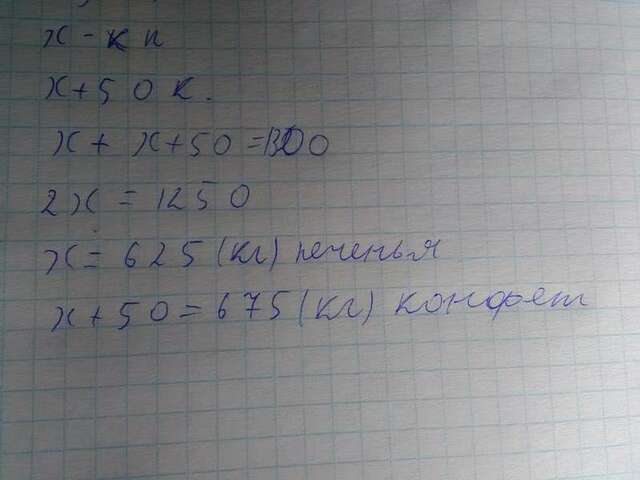 х - к п
х+50 к.
х + х+50 =1300
2х = 1250
х= 625 (кг) печенья
х+50=675 (кг) конфет